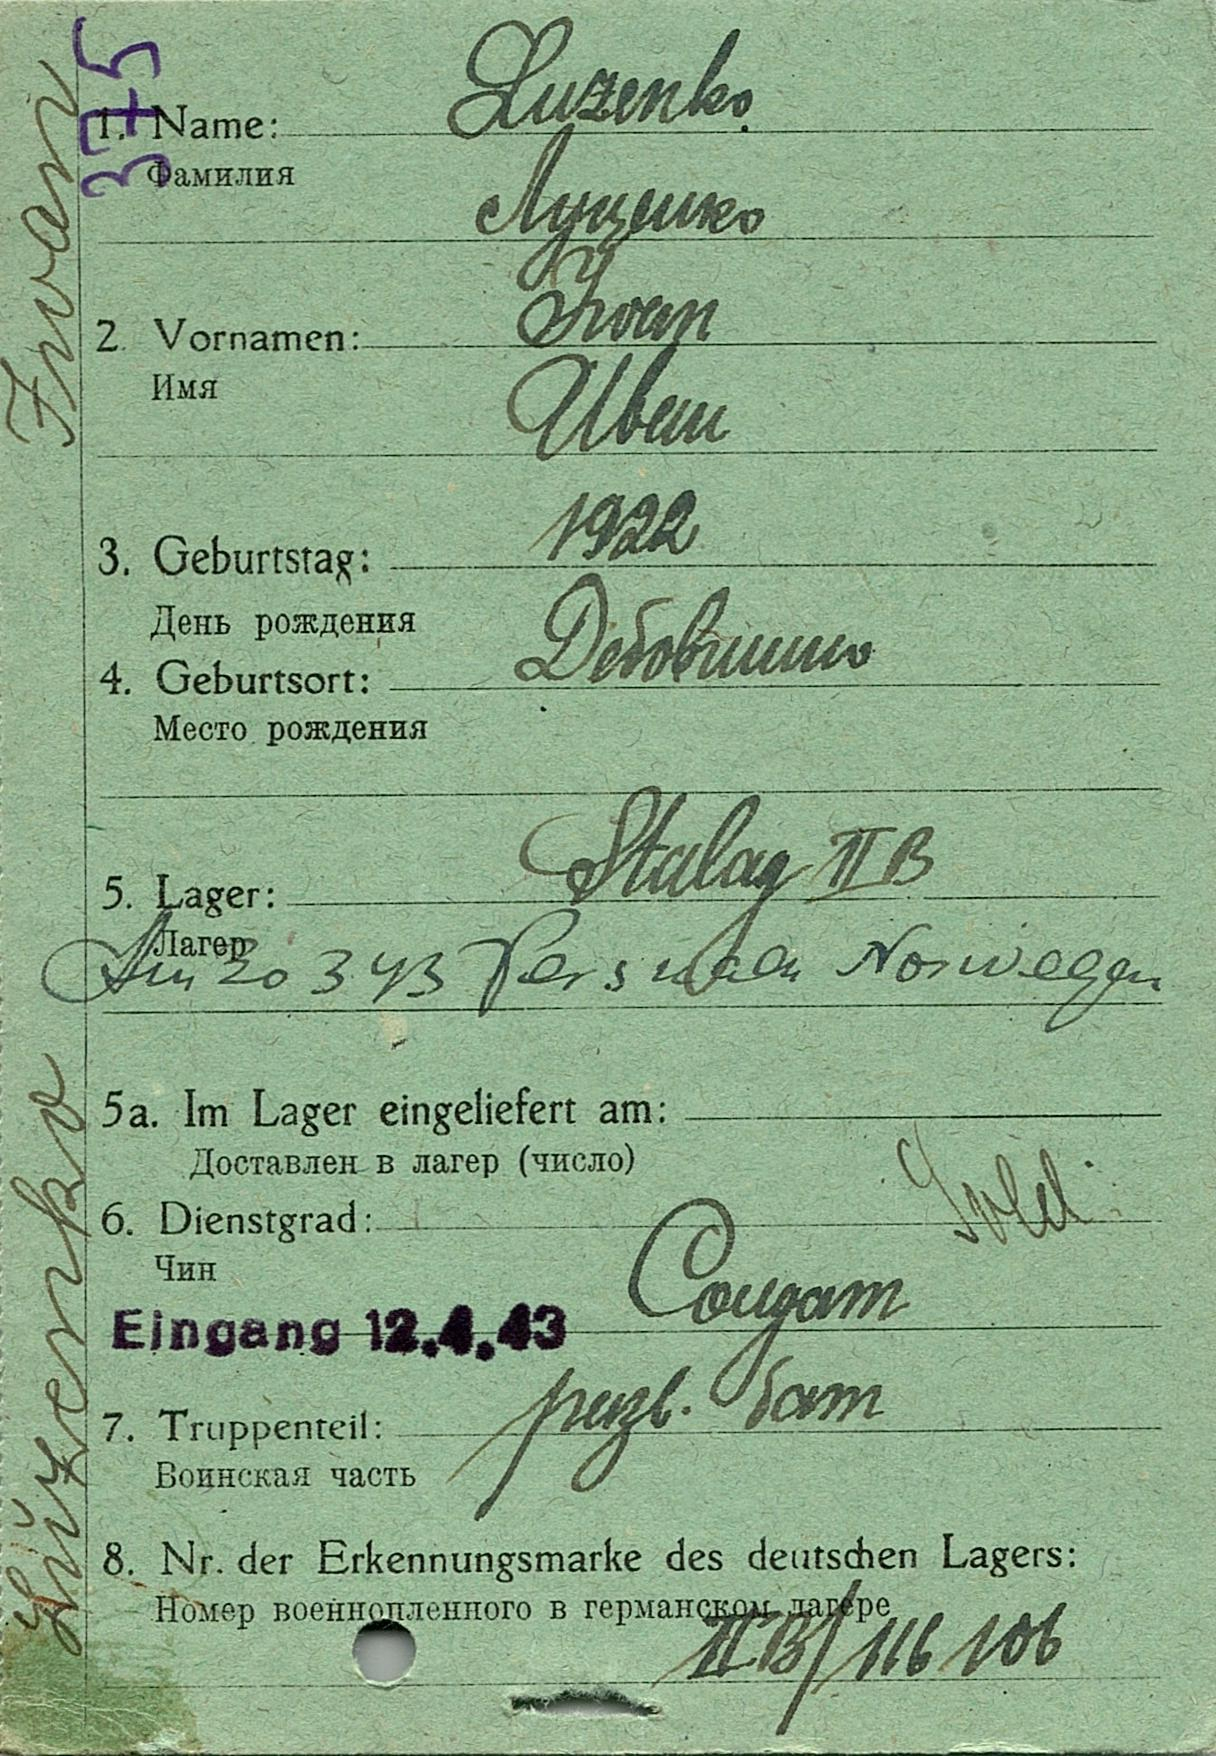 375
1. Name: Luzenko.
Фамилия
Луценко
2. Vornamen: Iwan
Имя
Иван
3. Geburtstag: 1922
День рождения
4. Geburtsort:
Место рождения
5. Lager: Stalag II B
Лагер
Am 20 3 43 Pers nach Norwegen
5a. Im Lager eingeliefert am:
Доставлен в лагер (число)
6. Dienstgrad: Sold.
Чин
Солдат
Eingang 12.4.43
7. Truppenteil: бат
Воинская часть
8. Nr. der Erkennungsmarke des deutschen Lagers:
Номер военнопленного в германском лагере
II B/116 106
Luzenko Iwan